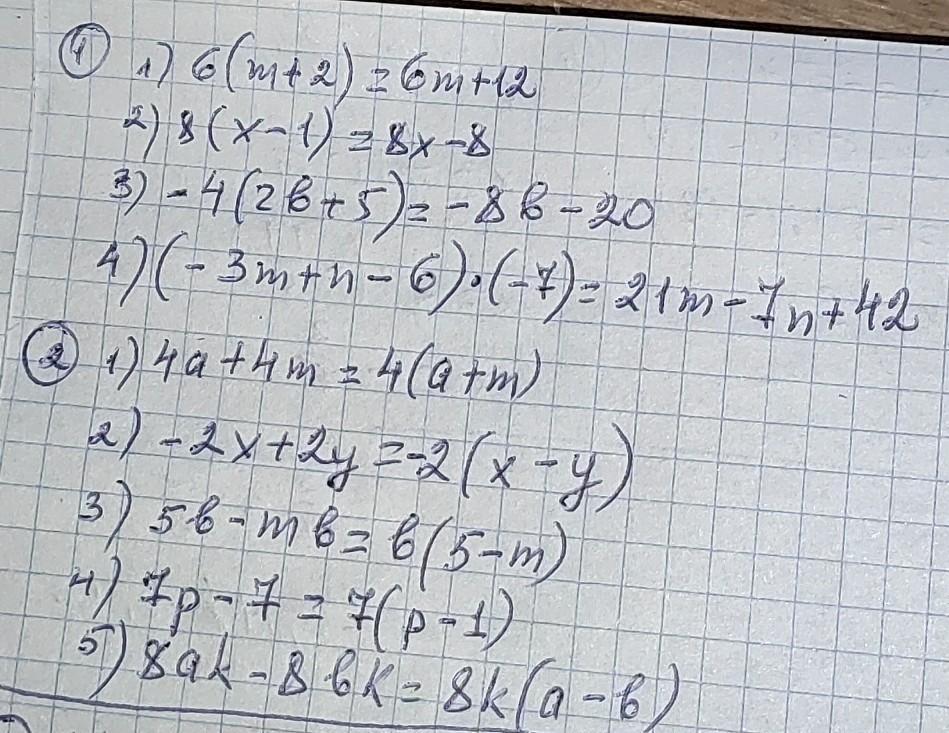 ① 1) 6(m+2)=6m+12
2) 8(x-1)=8x-8
3) -4(2b+5)=-8b-20
4) (-3m+n-6)·(-7)=21m-7n+42
② 1) 4a+4m=4(a+m)
2) -2x+2y=-2(x-y)
3) 5b-mb=b(5-m)
4) 7p-7=7(p-1)
5) 8ak-8bk=8k(a-b)